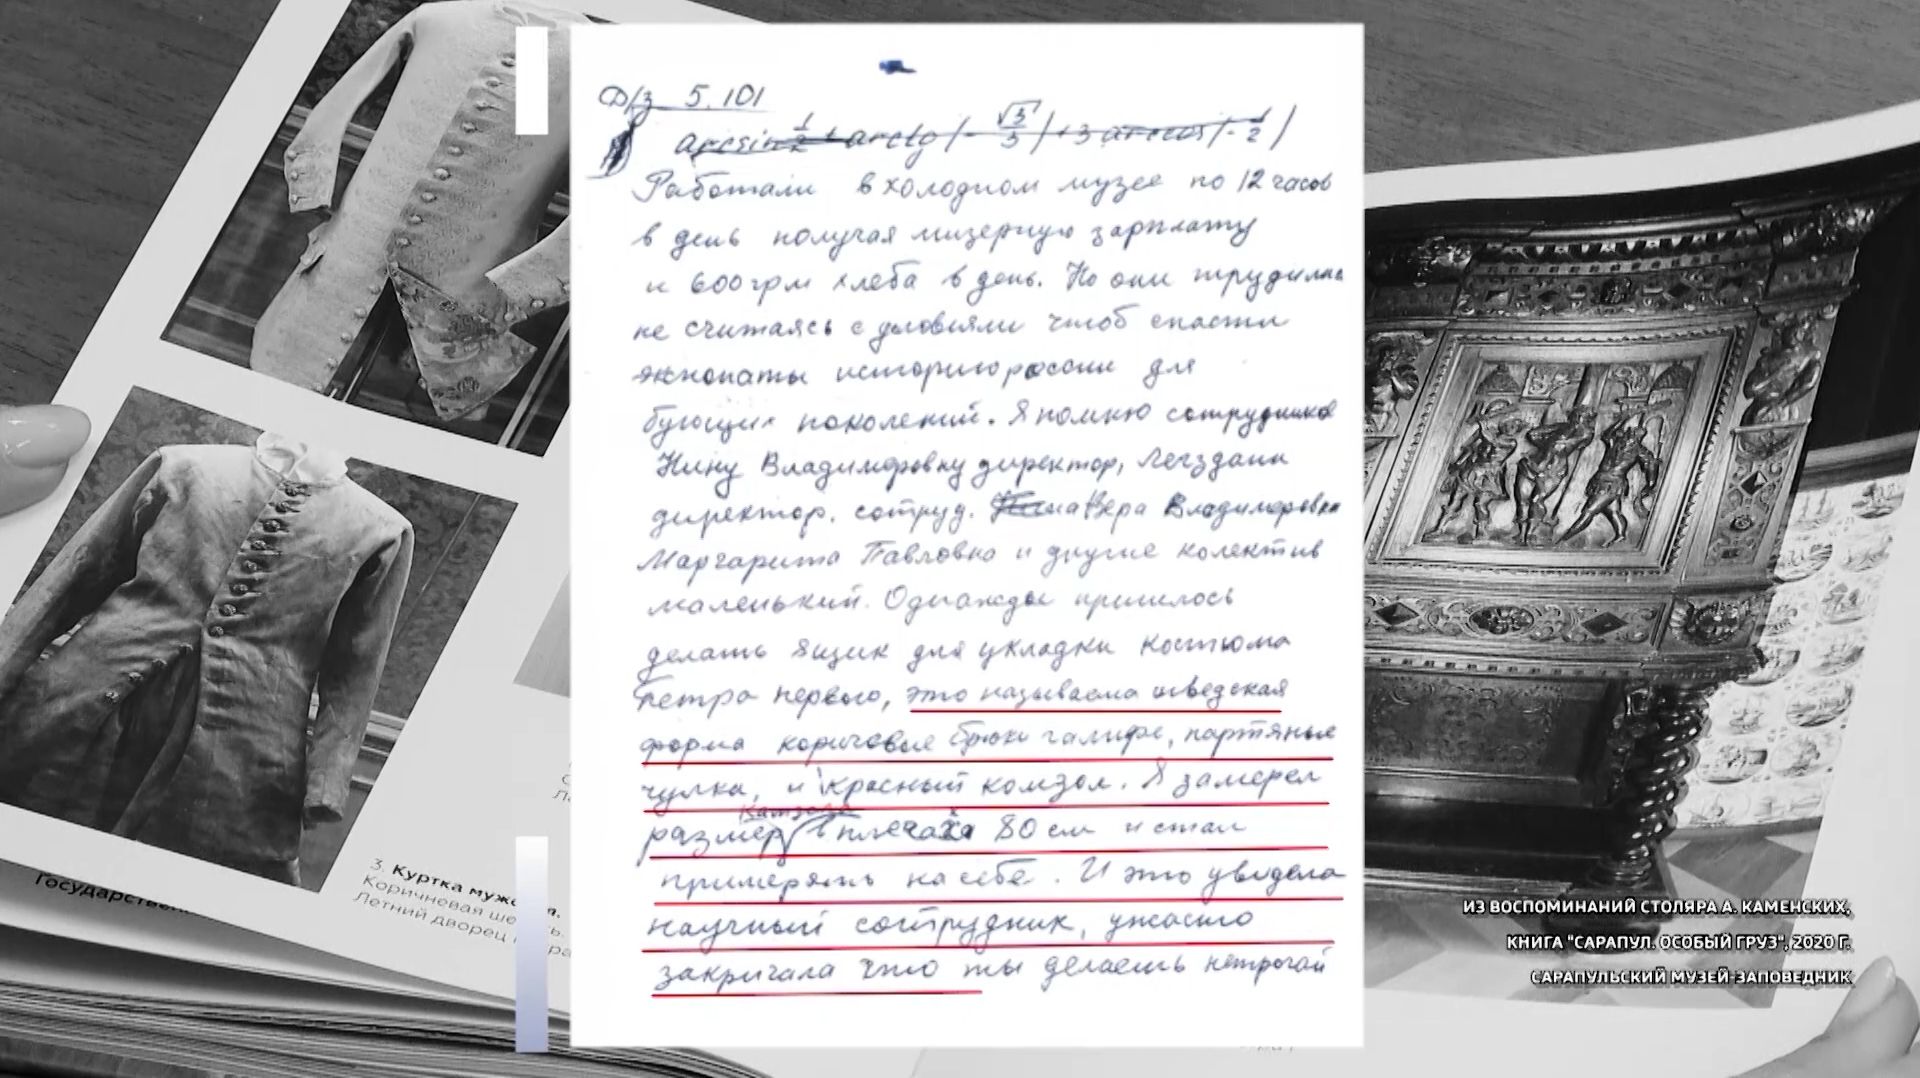 Д/з 5.101
arcsin 1/2 + arctg(-√3/3)+3 arccos(-1/2)
Работали в холодном музее по 12 часов
в день получая мизерную зарплату
и 600 грм хлеба в день. Но они трудились
не считаясь с условиями чтоб спасти
экспонаты историю россии для
бующих поколений. Я помню сотрудников
Нину Владимировну директор,
директор. сотруд. Вера Владимировна
Маргарита Павловна и другие колектив
маленький. Однажды пришлось
делать ящик для укладки костюма
петра первого, это называема шведская
форма коричовые брюки галифе, партяные
чулка, и красный комзол. Я замерел
камзола
размер в плечах 80 см и стал
примерять на себе. И это увидела
научный сотрудник, ужасно
закричала что ты делаешь нетрогай
3. Куртка муж
Коричневая ше
Летний дворец
Государствен
ИЗ ВОСПОМИНАНИЙ СТОЛЯРА А. КАМЕНСКИХ,
КНИГА "САРАПУЛ. ОСОБЫЙ ГРУЗ", 2020 Г.
САРАПУЛЬСКИЙ МУЗЕЙ-ЗАПОВЕДНИК